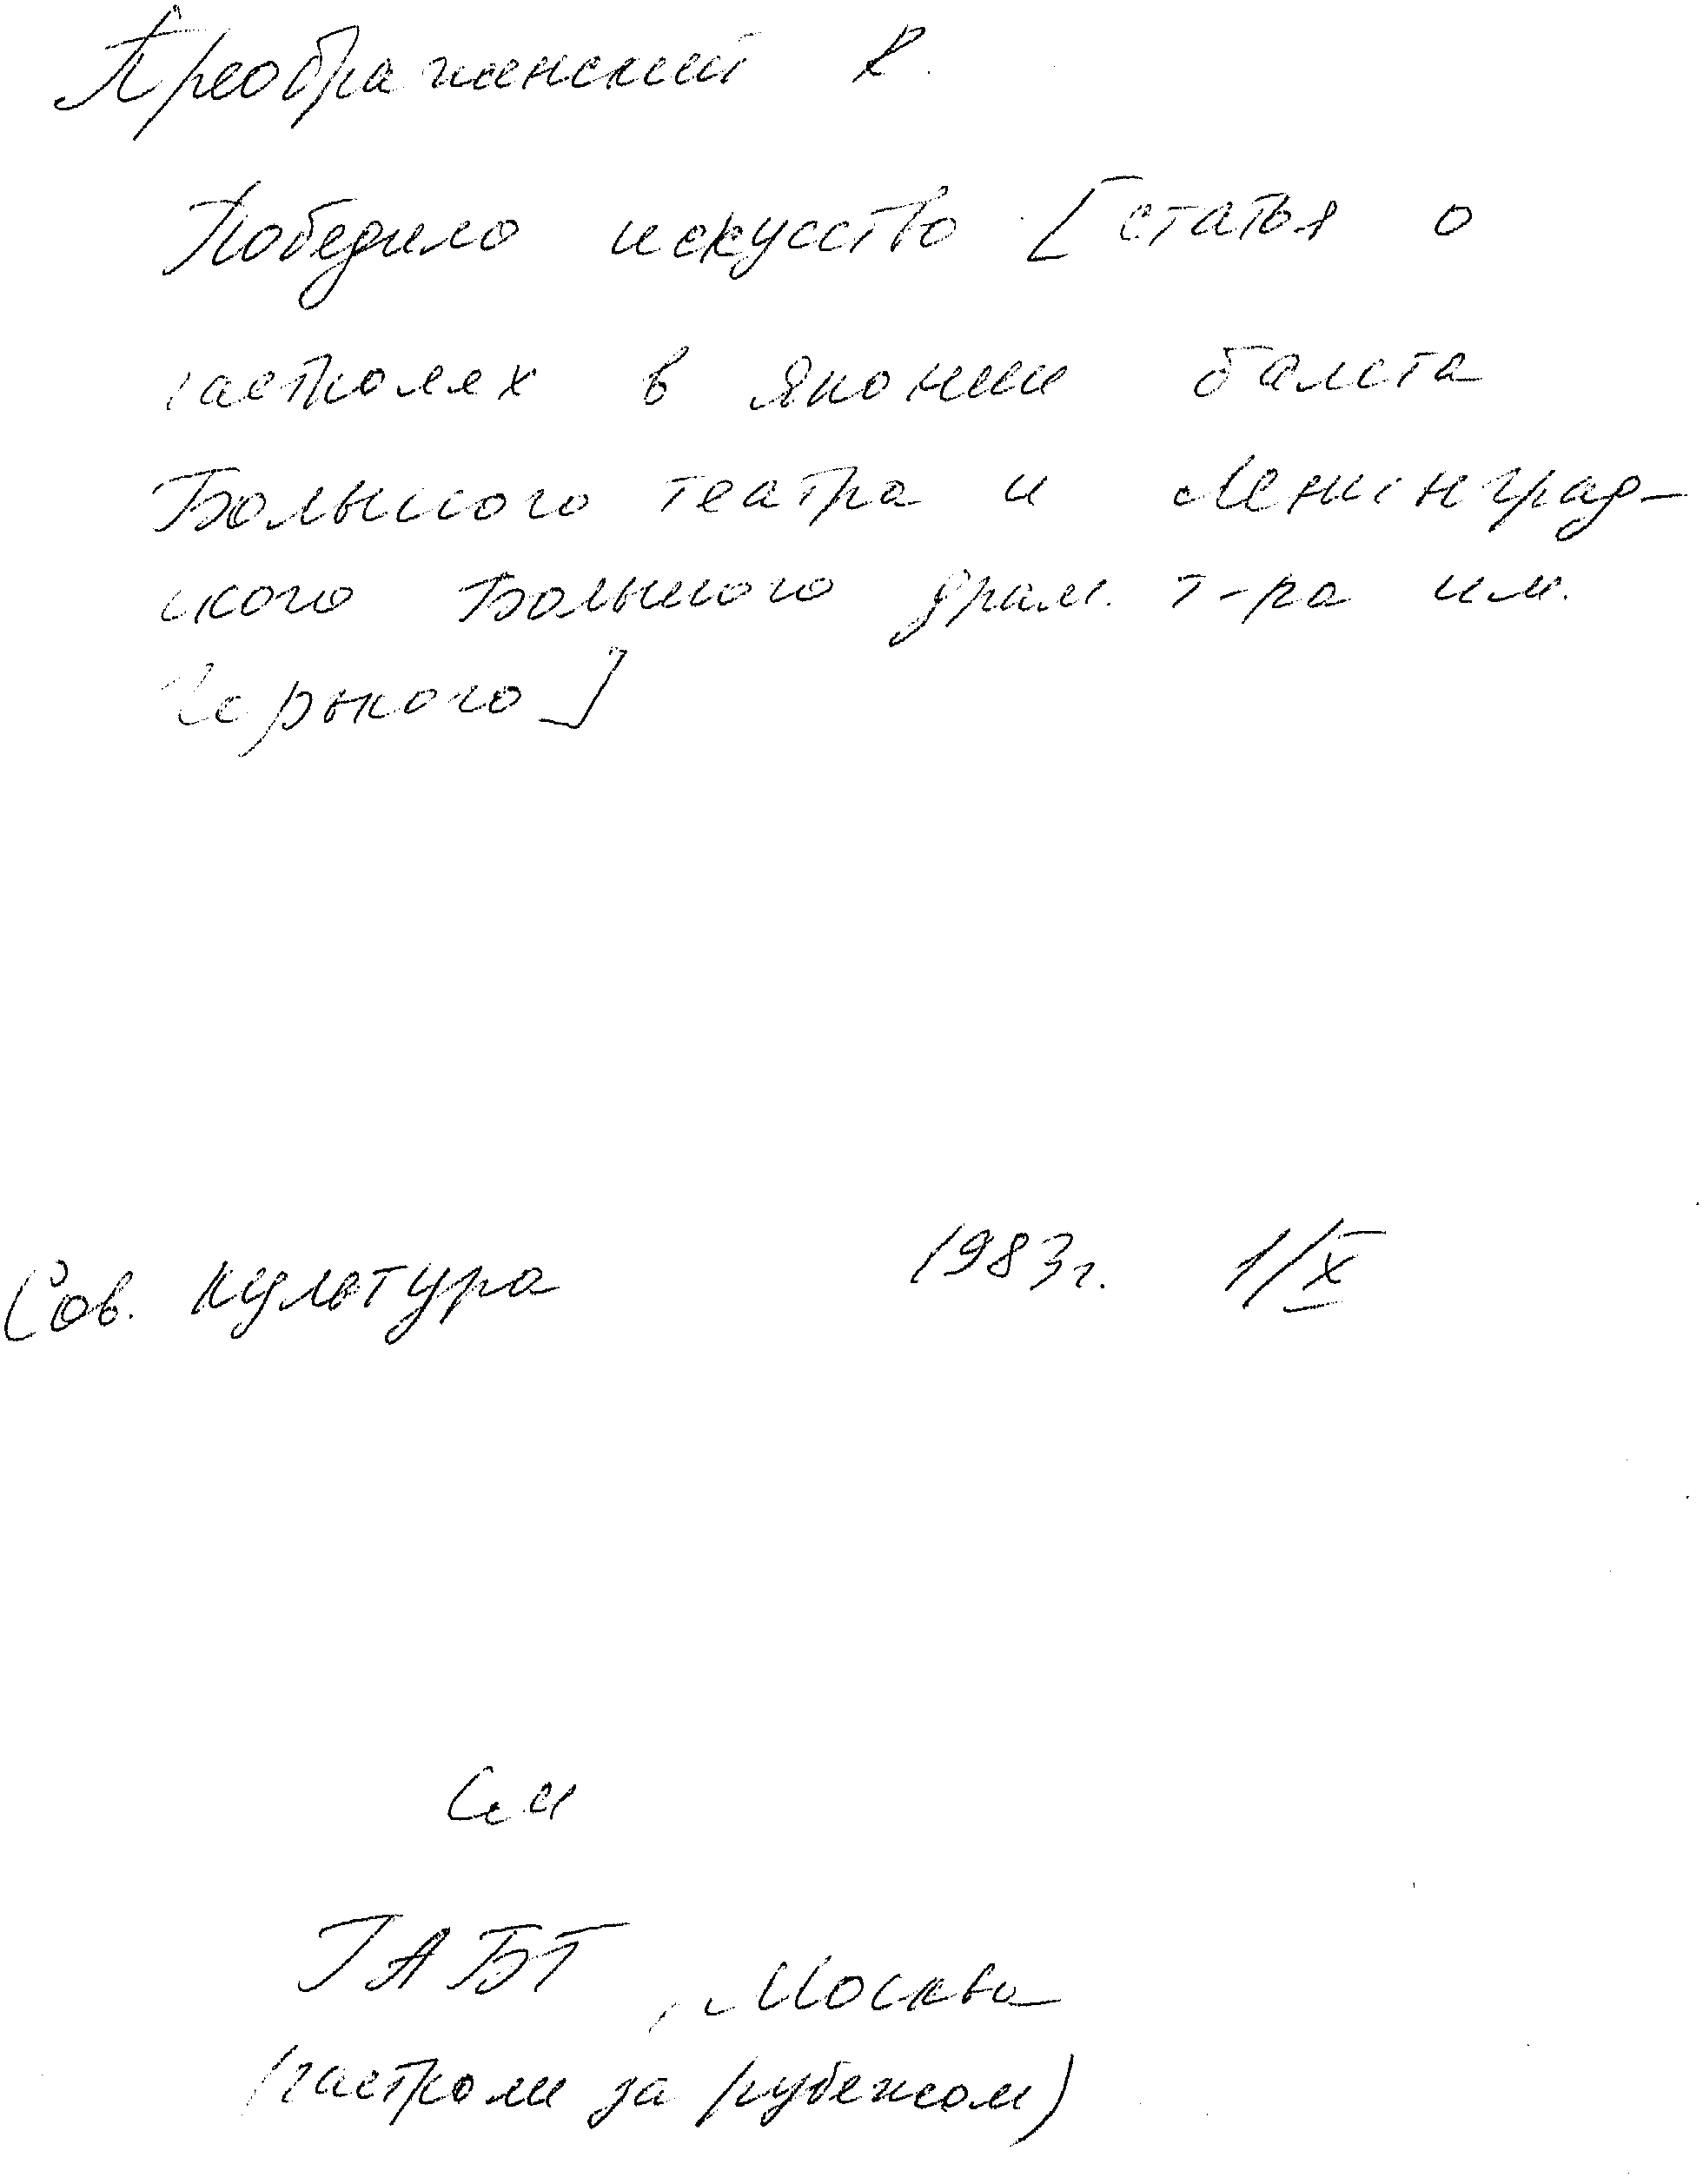 Преображенский К.
Победило искусство [статья о
гастролях в Японии балета
Большого театра и Ленинград-
ского Большого драм. т-ра им.
Горького]
Сов. культура 1983г. 1/X
См
ГАБТ, Москва
(гастроли за рубежом)